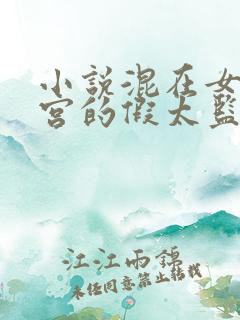 小说混在女
宫的假太监
江江雨锦
未经同意禁止转载